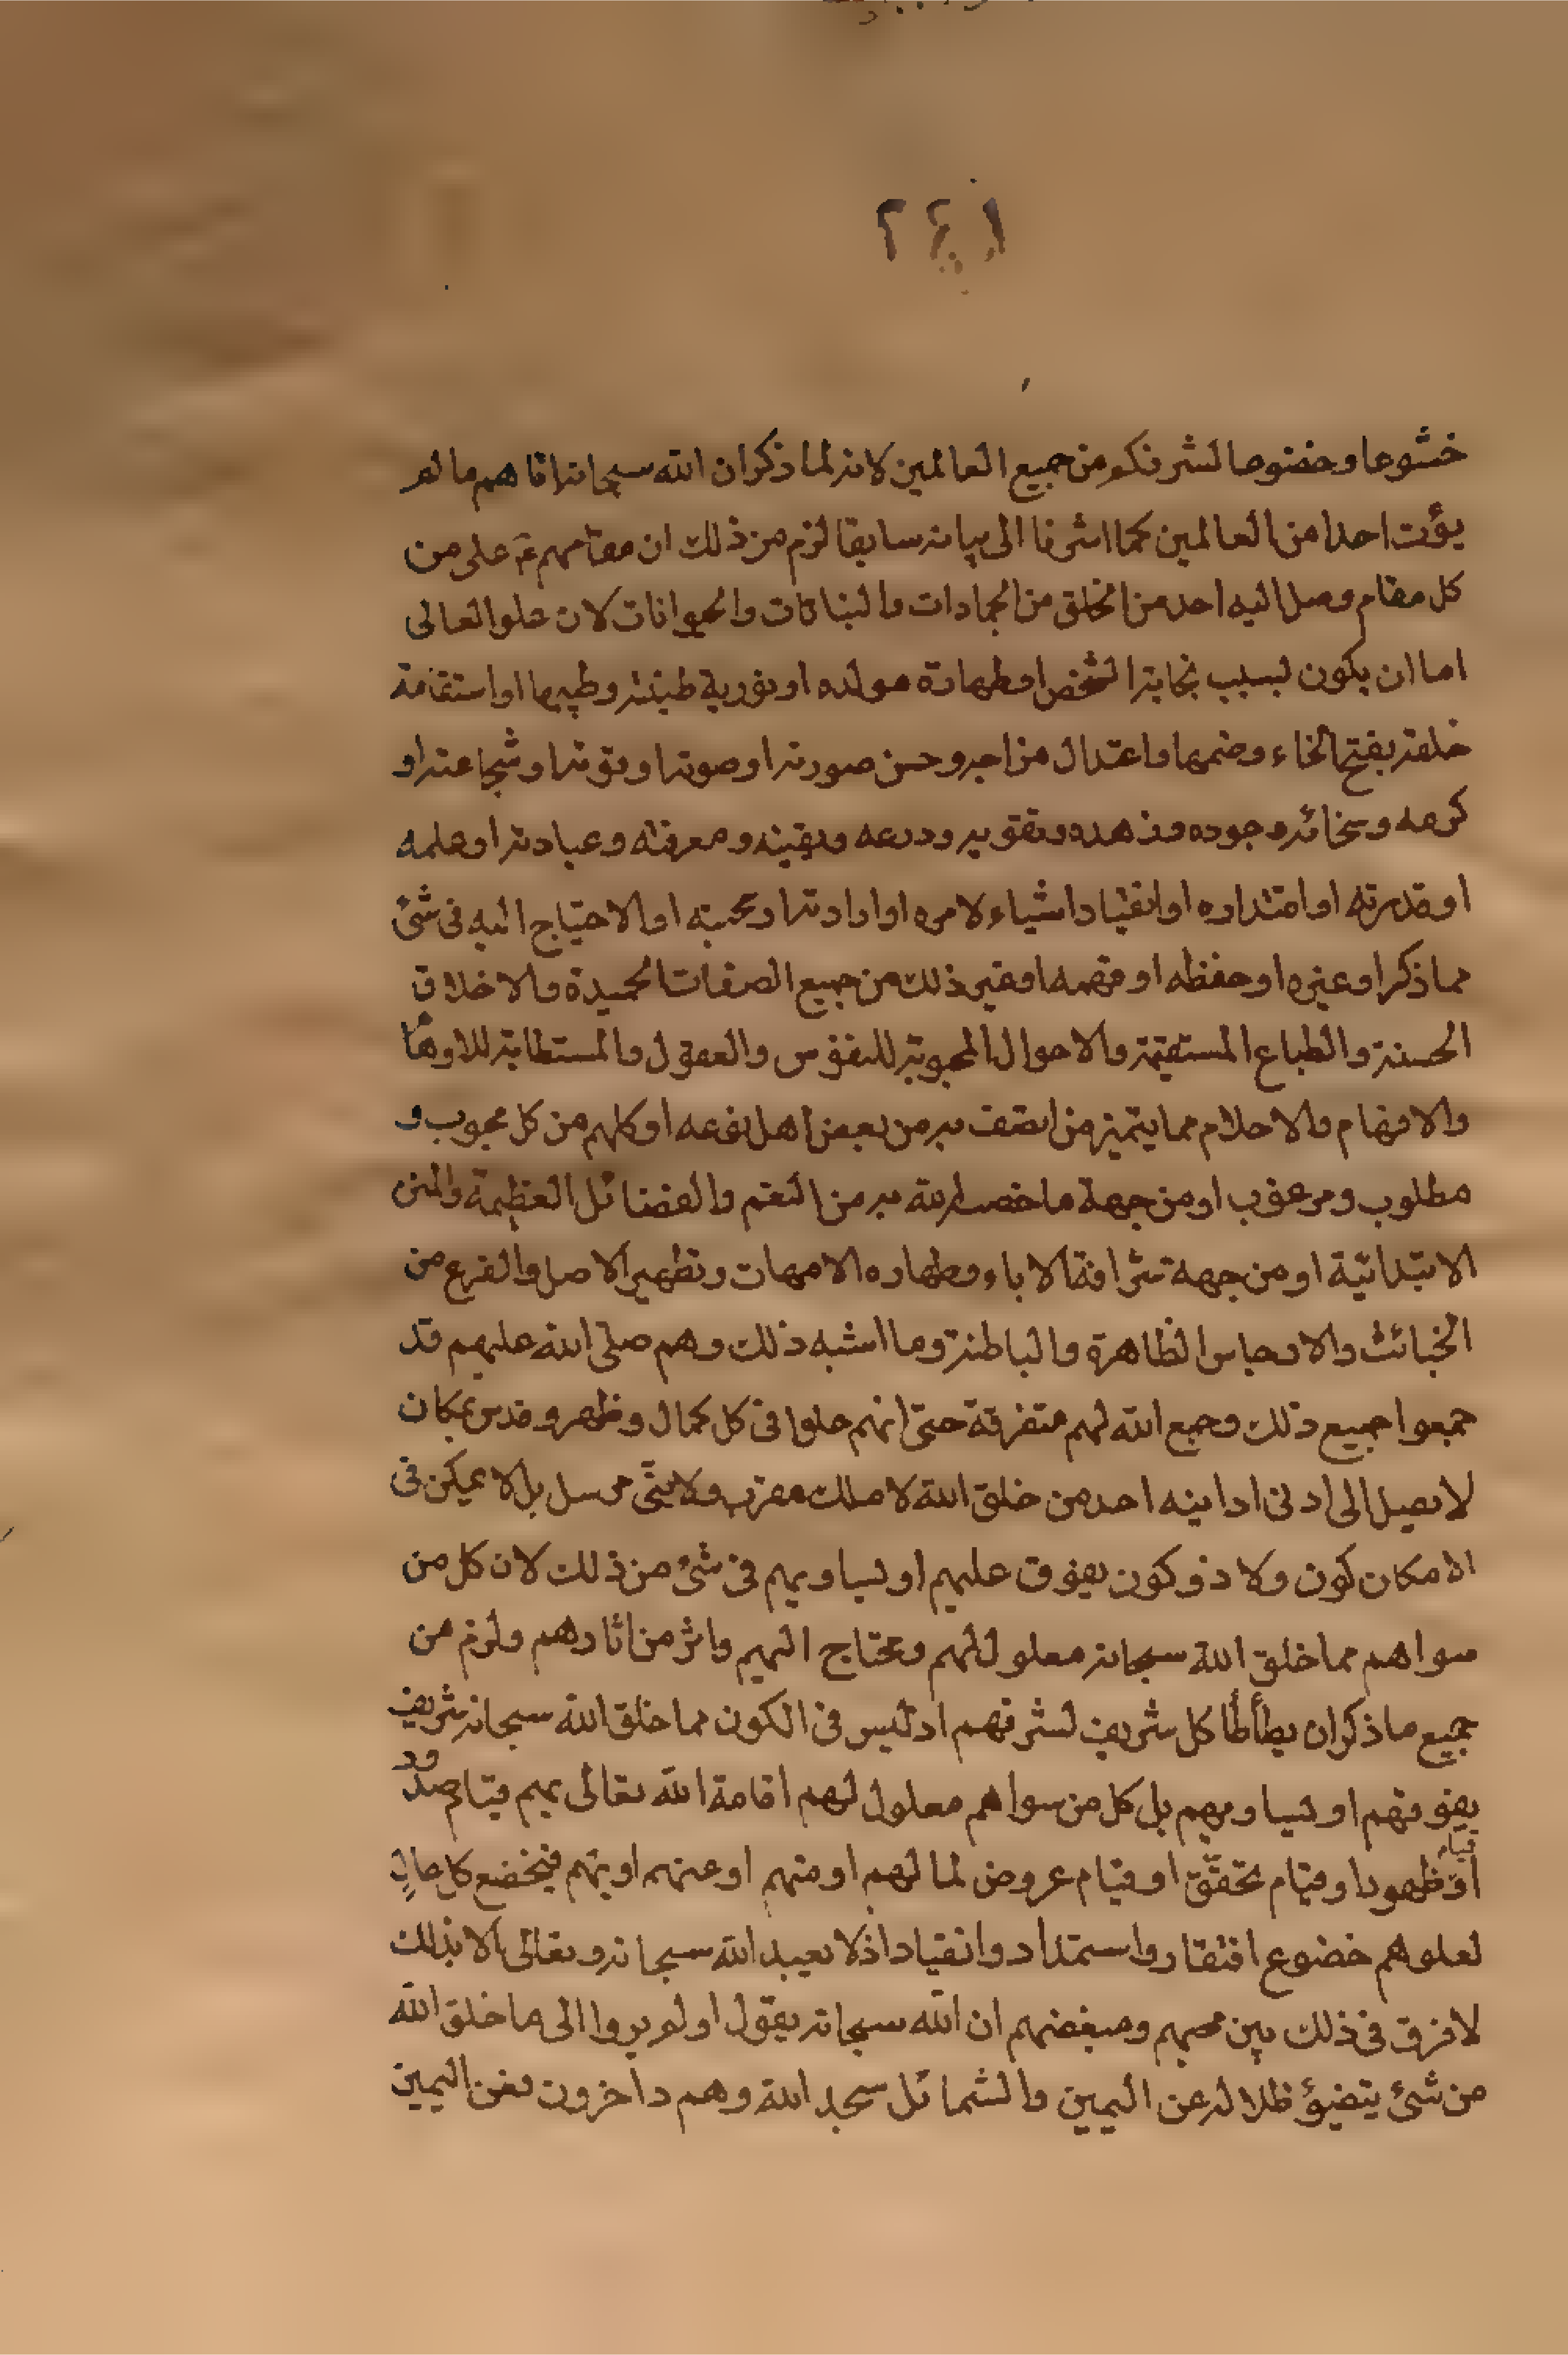 ٢٤١
خشوعا وخضوعا لشرفكم من جميع العالمين لانه لما ذكر ان الله سبحانه اتاهم ما لم
يؤت احدا من العالمين كما اشرنا الى بيانه سابقا لزم من ذلك ان مقامهم ع اعلى من
كل مقام وصل اليه احد من الخلق من الجمادات والنباتات والحيوانات لان علو العالى
اما ان يكون لسبب نجابة الشخص او طهارة مولده او نورية طينته وطيبها او استقامة
خلقته بفتح الخاء وضمها واعتدال مزاجه وحسن صورته او صوته او قوته او شجاعته او
كرمه وسخائه وجوده وزهده وتقويه وورعه ويقينه ومعرفته وعبادته او علمه
او قدرته او اقتداره او انقياد اشياء لامره او ارادته او محبته او الاحتياج اليه فى شئ
مما ذكر او غيره او حفظه او فهمه او غير ذلك من جميع الصفات الحميدة والاخلاق
الحسنة والطباع المستقيمة والاحوال المحبوبة للنفوس والعقول والمستطابة للاوها
والافهام والاحلام مما يتميز من اتصف به من بعض اهل نوعه او كلهم من كل محبوب و
مطلوب ومرغوب او من جهة ما خصه الله به من النعم والفضائل العظيمة والمنن
الابتدائية او من جهة شرافة الاباء وطهاره الامهات وتطهير الاصل والفرع من
الخبائث والارجاس الظاهرة والباطنة وما اشبه ذلك وهم صلى الله عليهم قد
جمعوا جميع ذلك وجمع الله لهم متفرقة حتى انهم حلوا فى كل كمال وطهر وقدس بمكان
لا يصل الى ادنى ادانيه احد من خلق الله لا ملك مقرب ولا نبى مرسل بل لا يمكن فى
الامكان كون ولا ذو كون يفوق عليهم او يساويهم فى شئ من ذلك لان كل من
سواهم مما خلق الله سبحانه معلول لهم ومحتاج اليهم واثر من اثارهم ولزم من
جميع ما ذكر ان يطأطأ كل شريف لشرفهم اذ ليس فى الكون مما خلق الله سبحانه شريف
يفوقهم او يساويهم بل كل من سواهم معلول لهم اقامة الله تعالى بهم قيام صدور
او قيام ظهور او قيام تحقق او قيام عروض لما لهم او منهم او عنهم او بهم فيخضع كل عالٍ
لعلوهم خضوع افتقار واستمداد وانقياد اذ لا يعبد الله سبحانه وتعالى الا بذلك
لا فرق فى ذلك بين محبهم ومبغضهم ان الله سبحانه يقول اولم يروا الى ما خلق الله
من شئ يتفيؤ ظلاله عن اليمين والشمائل سجد الله وهم داخرون فمن اليمين